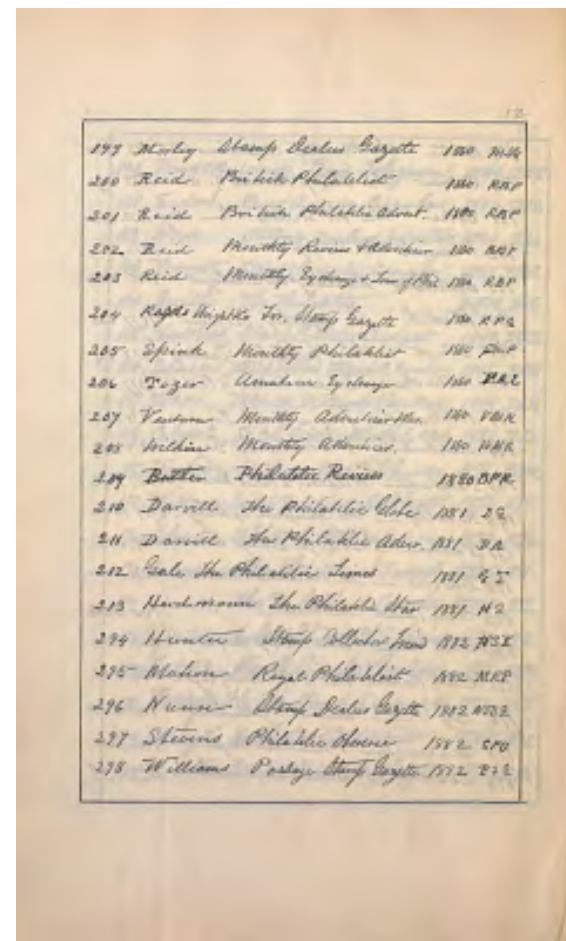 12
199 Morley Stamp Dealers Gazette 1880
200 Reid British Philatelist 1880 RBP
201 Reid British Philatelic Advert. 1880 RBP
202 Reid Monthly Review & Advertiser 1880
203 Reid Monthly Exchange & 1880 RBP
204 Stamp Gazette 1880
205 Spink Monthly Philatelist 1880
206 Tozer Amateur Exchange 1880
207 Ventom Monthly Advertiser 1880
208 Wilkins Monthly Advertiser. 1880
209 Butler Philatelic Review 1880 BPR
210 Darvill The Philatelic Globe 1881 DG
211 Darvill The Philatelic Adver. 1881 DA
212 Gale The Philatelic Times 1881 GT
213 The Philatelic Star 1881 HS
294 Hunter Stamp Collector 1882
295 Mahon Royal Philatelist 1882 MRP
296 Nunn Stamp Dealers Gazette 1882
297 Stevens Philatelic Observer 1882 SPO
298 Williams Postage Stamp Gazette. 1882